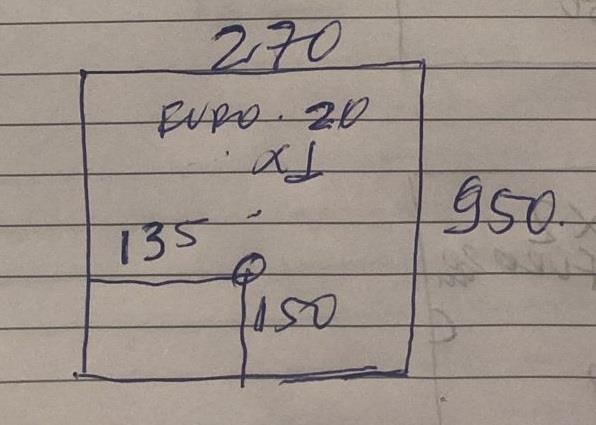 270
EURO. 20
x1
950.
135
150